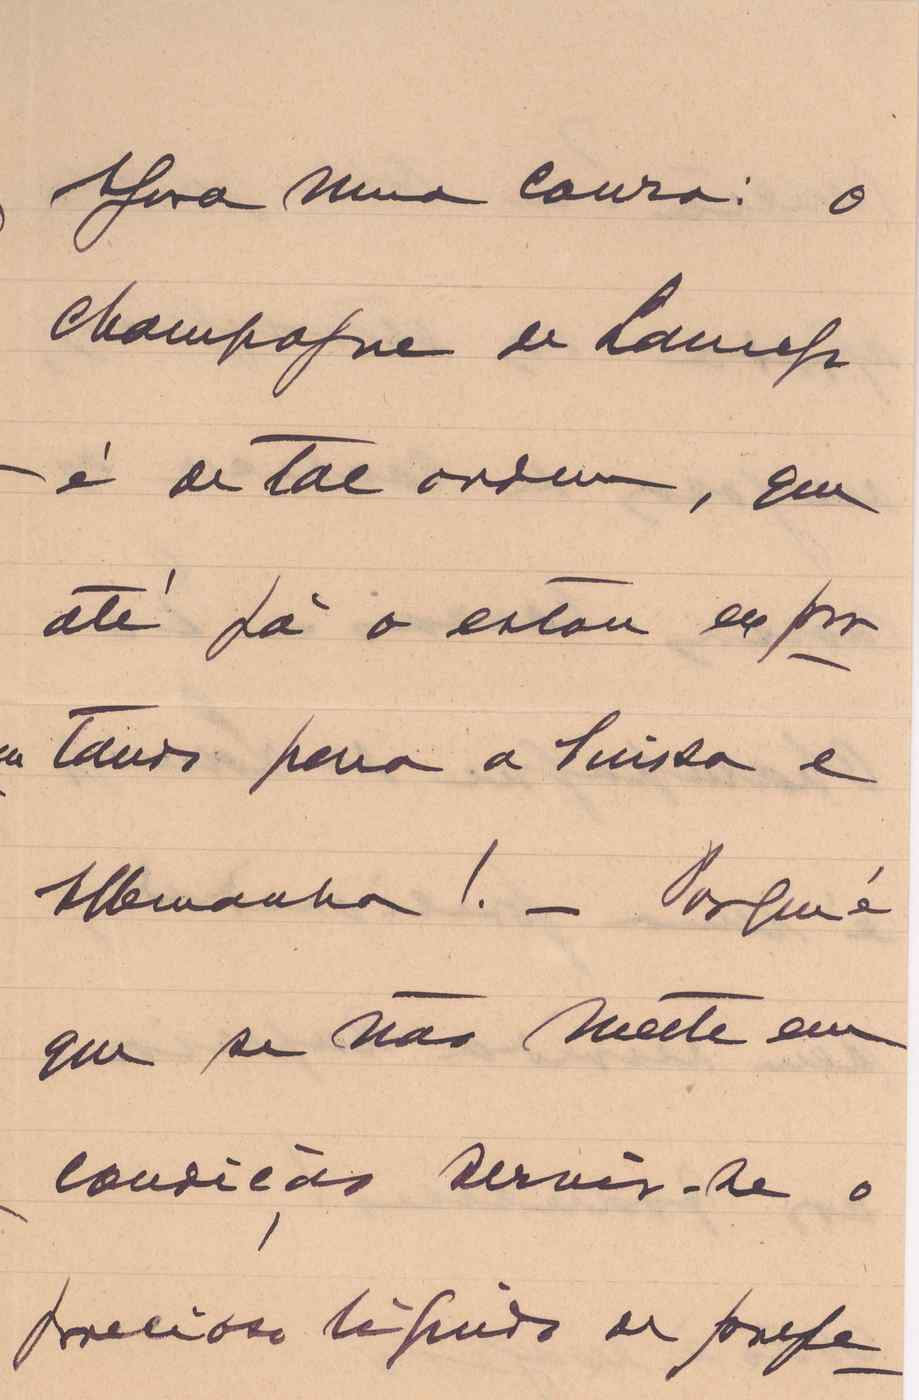 Agora uma cousa: o
champagne de Lamego
é de tal ordem, que
até já o estou expor
tando para a Suissa e
Allemanha! — Porque é
que se não mette em
condição servir-se o
precioso liquido de prefe